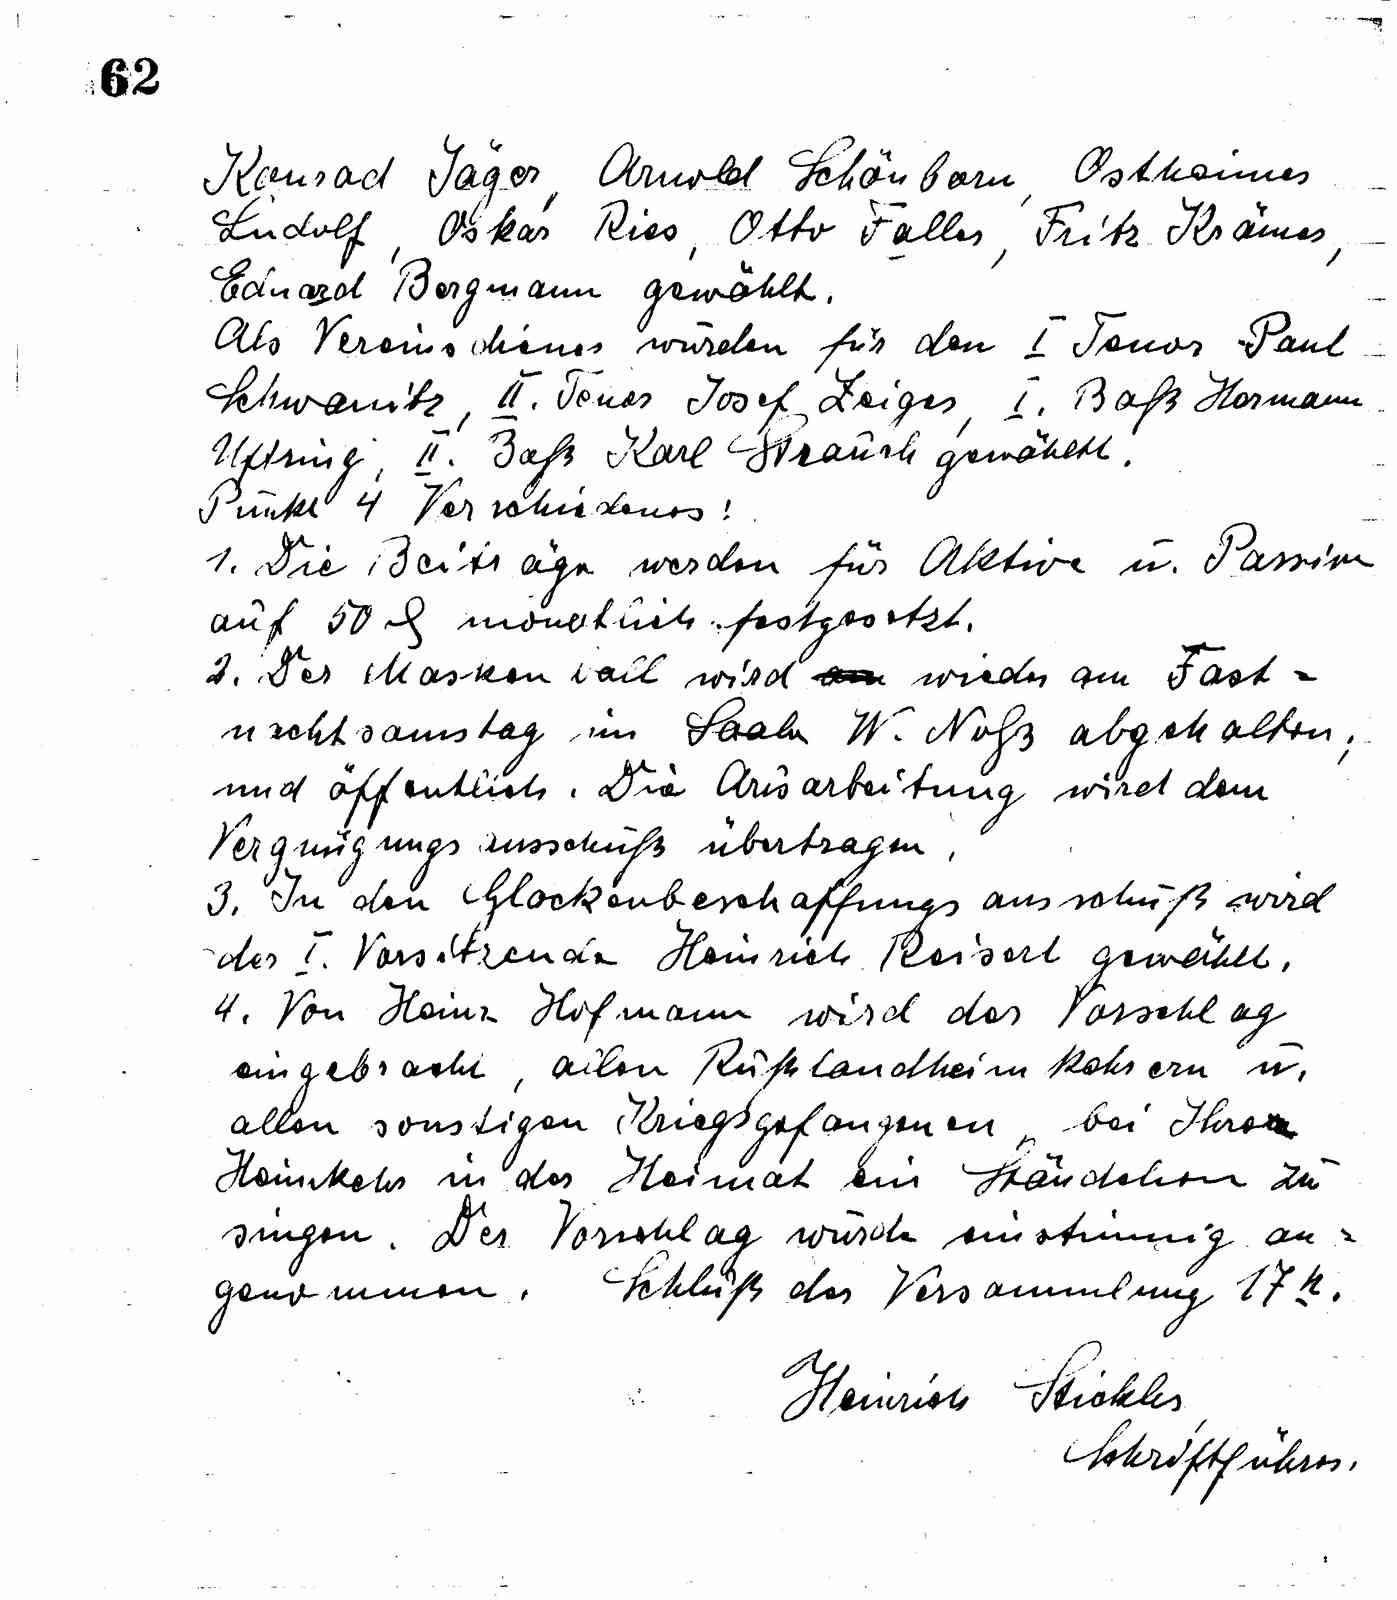 62
Konrad Jäger, Arnold Schönborn, Ostheimer
Ludolf, Oskar Ries, Otto Faller, Fritz Krämer,
Eduard Bergmann gewählt.
Als Vereinsdiener wurden für den I Tenor Paul
Schwanitz, II. Tenor Josef Zeiger, I. Baß Hermann
Uftring, II. Baß Karl Strauch gewählt.
Punkt 4 Verschiedenes:
1. Die Beiträge werden für Aktive u. Passive
auf 50 ₰ monatlich festgesetzt.
2. Der Maskenball wird am wieder am Fast-
nachtsamstag im Saale W. Noß abgehalten,
und öffentlich. Die Ausarbeitung wird dem
Vergnügungsausschuß übertragen.
3. In den Glockenbeschaffungsausschuß wird
der I. Vorsitzende Heinrich Reisert gewählt.
4. Von Heinz Hofmann wird der Vorschlag
eingebracht, allen Rußlandheimkehrern u.
allen sonstigen Kriegsgefangenen, bei Ihrer
Heimkehr in der Heimat ein Ständchen zu
singen. Der Vorschlag wurde einstimmig an-
genommen. Schluß der Versammlung 17 h.
Heinrich Stickler
Schriftführer.